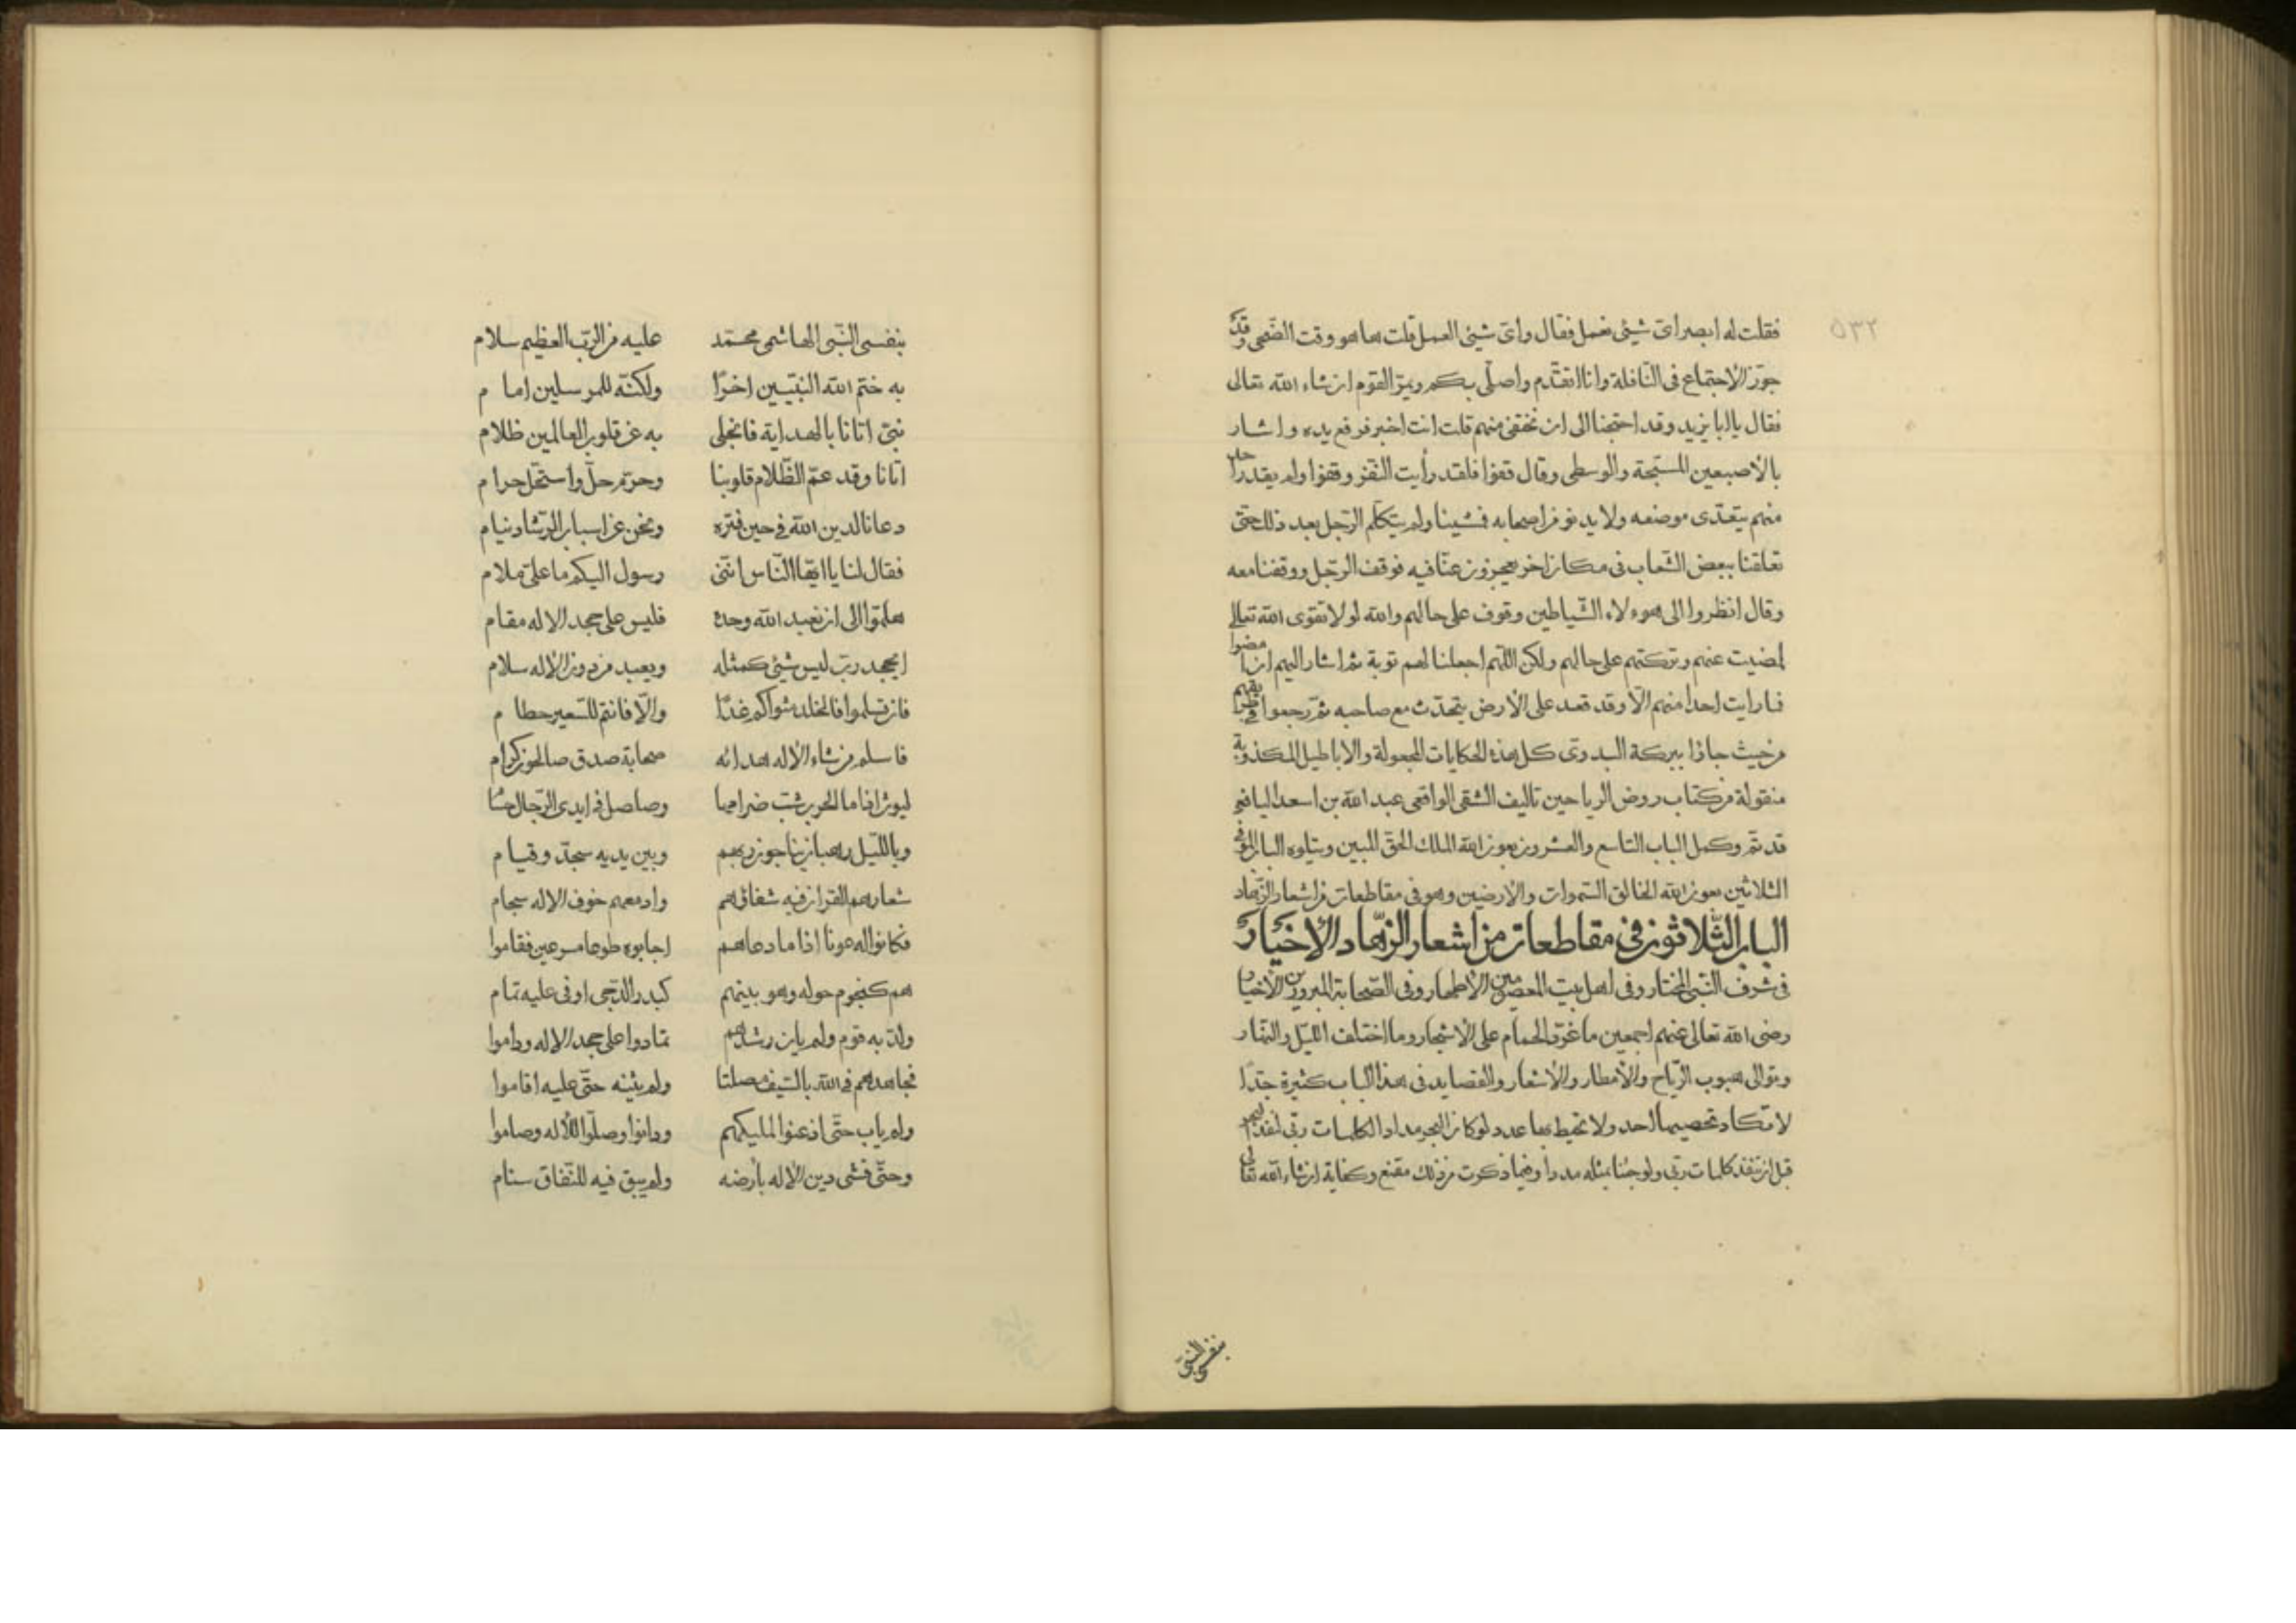 ٥٣٢
فقلت له ابصر ای شیئی نعمل فقال وای شیئی العمل قلت هاهو وقت الضحی وقد
جوّز الاجتماع فی النّافلة وانا اتقدّم واصلّی بكم ویمرّ القوم ان شاء الله تعالی
فقال یا ابا یزید وقد احتجنا الی ان نختفی منهم قلت انت اخبر فرفع یده واشار
بالأصبعین المسبّحة والوسطی وقال قفوا فلقد رأیت النّفر وقفوا ولم یقدر احد
منهم یتعدّی موضعه ولا یدنو من اصحابه فمشینا ولم یتكلّم الرّجل بعد ذلك حتّی
تعلقنا ببعض الشّعاب فی مكان اخر یعجزون عنّا فیه فوقف الرّجل ووقفنا معه
وقال انظروا الی هوءلاء الشّیاطین وقوف علی حالهم والله لولا تقوی الله تعالی
لمضیت عنهم وتركتهم علی حالهم ولكن اللّهم اجعلنا لهم توبة ثم اشار الیهم ان امضوا
فما رایت احدا منهم الّا وقد قعد علی الأرض یتحدّث مع صاحبه ثمّ رجعوا فی طریقهم
من حیث جاؤا ببركة البدوی كل هذه الحكایات المجعولة والاباطیل المكذوبة
منقولة من كتاب روض الریاحین تالیف الشقی الواقعی عبد الله بن اسعد الیافعی
قد تمّ وكمل الباب التاسع والعشرون بعون الله الملك الحقّ المبین ویتلوه الباب الموفی
الثلاثین بعون الله الخالق السّموات والارضین وهو فی مقاطعات من اشعار الزّهاد
الباب الثّلاثون فی مقاطعات من اشعار الزّهاد الأخیار
فی شرف النّبی المختار وفی اهل بیت المعصومین الأطهار وفی الصّحابة المبرورین الأخیار
رضی الله تعالی عنهم اجمعین ما غرّد الحمام علی الأشجار وما اختلف اللّیل والنّهار
وتوالی هبوب الرّیاح والأمطار والأشعار والقصاید فی هذا الباب كثیرة جدّا
لا تكاد تحصیها احد ولا تحیط بها عدد لو كان البحر مدادا لكلمات ربّی لنفد البحر
قبل ان تنفد كلمات ربّی ولو جئنا بمثله مددا وفیما ذكرت من ذلك مقنع وكفایة ان شاء الله تعالی
بنفسی النّبی
بنفسی النّبی الهاشمی محمّد علیه من الرّب العظیم سلام
به ختم الله النّبیّین اخرًا ولكنّه للمرسلین امام
نبیّ اتانا بالهدایة فانجلی به عن قلوب العالمین ظلام
اتانا وقد عمّ الظّلام قلوبنا وحرّم حلّ واستحلّ حرام
دعانا لدین الله فی حین فتره ونحن عن اسباب الرّشاد نیام
فقال لنا یا ایّها النّاس انّنی رسول الیكم ما علیّ ملام
هلمّوا الی ان نعبد الله وحده فلیس علی جحد الاله مقام
ایجحد ربّ لیس شیئی كمثله ویعبد من دون الأله سلام
فان تسلموا فالخلد مثواكم غدًا والّا فانتم للسّعیر حطام
فاسلم من شاء الأله هدائه صحابة صدق صالحون كرام
لیوث اذا ما الحرب شبّ ضرامها وصاصل فی ایدی الرّجال حسام
وباللّیل رهبان یناجون ربهم وبین یدیه سجّد وقیام
شعارهم القران فیه شفاؤهم وادمعهم خوف الاله سجام
فكانوا له عونا اذا ما دعاهم اجابوه طوعا مسرعین فقاموا
هم كنجوم حوله وهو بینهم كبدر الدّجی اوفی علیه تمام
ولذ به قوم ولم یان رشدهم تمادوا علی جحد الاله وداموا
فجاهدهم فی الله بالسّیف مصلتا ولم یثنه حتّی علیه اقاموا
ولم یاب حتّی اذعنوا لملیكهم ودانوا وصلّوا للأله وصاموا
وحتّی فشی دین الأله بأرضه ولم یبق فیه للنّفاق سنام